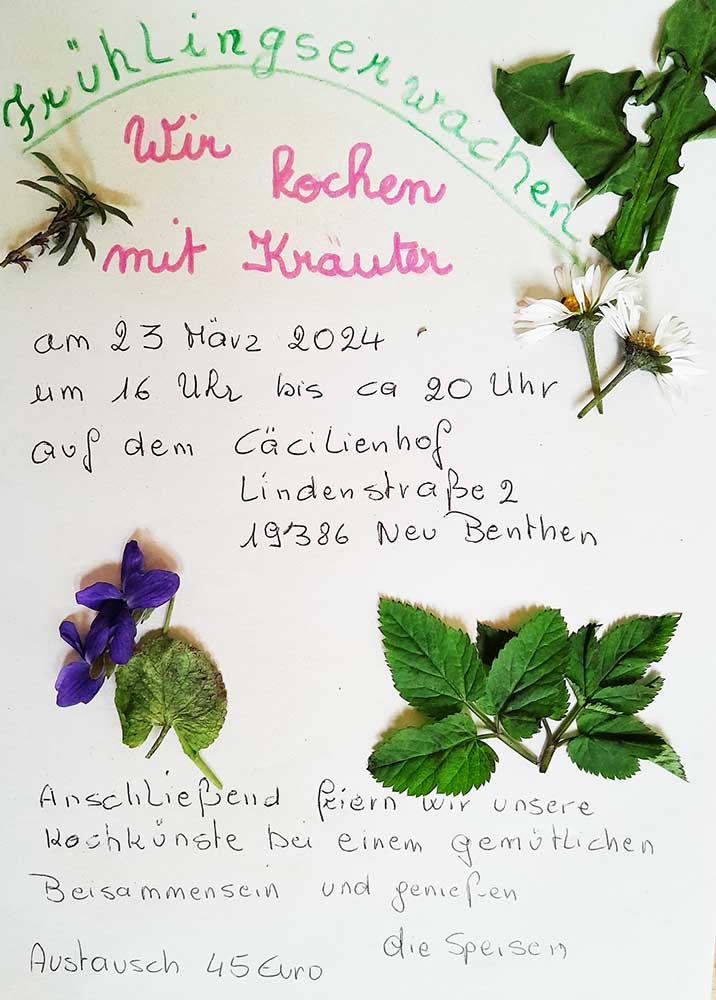 Frühlingserwachen
Wir
kochen
mit Kräuter
am 23 März 2024
um 16 Uhr bis ca 20 Uhr
auf dem Cäcilienhof
Lindenstraße 2
19386 Neu Benthen
Anschließend feiern wir unsere
Kochkünste bei einem gemütlichen
Beisammensein und genießen
die Speisen
Austausch 45 Euro